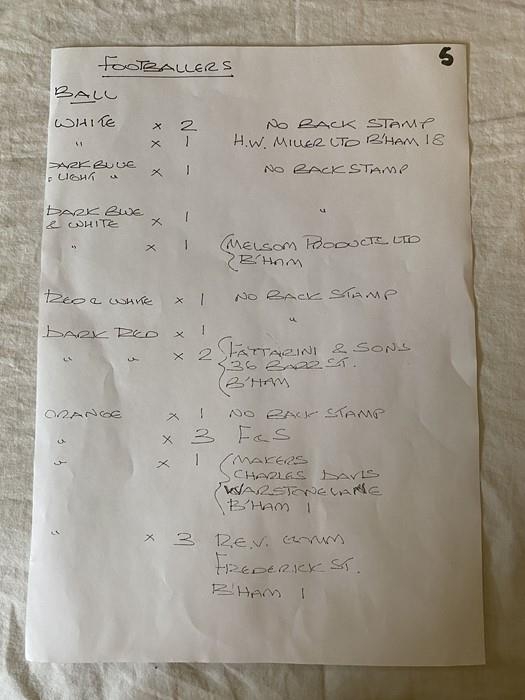 5
FOOTBALLERS
BALL
WHITE × 2 NO BACK STAMP
" × 1 H.W. MILLER LTD B'HAM 18
DARK BLUE
" LIGHT " × 1 NO BACK STAMP
DARK BLUE
& WHITE × 1 "
" × 1 MELSOM PRODUCTS LTD
B'HAM
RED & WHITE × 1 NO BACK STAMP
DARK RED × 1 "
" " × 2 FATTARINI & SONS
36 BARR ST.
B'HAM
ORANGE × 1 NO BACK STAMP
" × 3 F&S
" × 1 MAKERS
CHARLES DAVIS
WARSTONE LANE
B'HAM 1
" × 3 R.E.V.
FREDERICK ST.
B'HAM 1